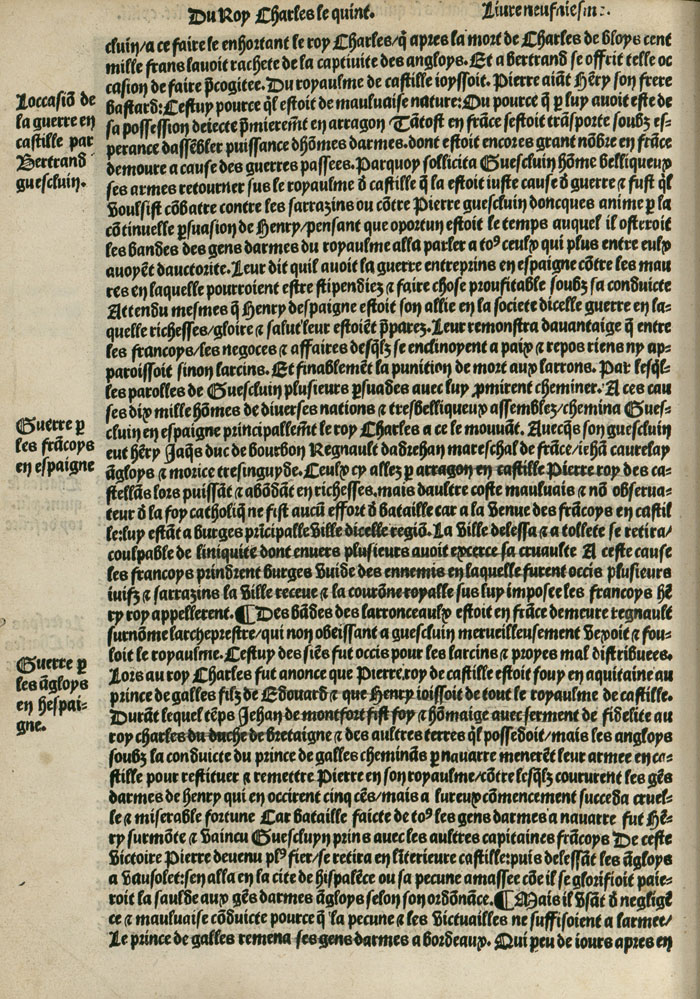 Du Roy Charles le quint.
Liure neufuiesm:.
cluin/a ce faire le enhortant le roy Charles/q̄ apres la mort de Charles de bloys cent
mille frans lauoit rachete de la captiuite des angloys. Et a bertrand se offrit telle oc
casion de faire p̄cogitee. Du royaulme de castille ioyssoit. Pierre aiāt Hēry son frere
bastard: Cestuy pource q̄l estoit de mauluaise nature: Ou pource q̄ p luy auoit este de
sa possession deiecte p̄mieremēt en arragon/ Tātost en frāce sestoit trāsporte soubz es-
perance dassēbler puissance dhōmes darmes. dont estoit encores grant nōbre en frāce
demoure a cause des guerres passees. Parquoy sollicita Guescluin hōme belliqueux
ses armes retourner sus le royaulme ō castille q̄ la estoit iuste cause ō guerre ⁊ fust q̄l
voulsist cōbatre contre les sarrazins ou cōtre Pierre guescluin doncques anime p la
cōtinuelle p̄suasion de Henry/pensant que oportun estoit le temps auquel il osteroit
les bandes des gens darmes du royaulme alla parler a to⁹ ceulx qui plus entre eulx
auoyēt dauctorite. Leur dit quil auoit la guerre entreprins en espaigne cōtre les mau
res en laquelle pourroient estre stipendiez ⁊ faire chose proufitable soubz sa conduicte
Attendu mesmes q̄ Henry despaigne estoit son allie en la societe dicelle guerre en la-
quelle richesses/gloire ⁊ salut leur estoiēt p̄parez. Leur remonstra dauantaige q̄ entre
les francoys/les negoces ⁊ affaires desq̄lz se enclinoyent a paix ⁊ repos riens ny ap-
paroissoit sinon larcins. Et finablemēt la punition de mort aux larrons. Par lesq̄l-
les parolles de Guescluin plusieurs p̄suades auec luy p̄mirent cheminer. A ces cau
ses dix mille hōmes de diuerses nations ⁊ tresbelliqueux assemblez/chemina Gues-
cluin en espaigne principallemēt le roy Charles a ce le mouuāt. Auecq̄s son guescluin
eut hēry Jaq̄s duc de bourbon Regnault dadrehan mareschal de frāce/iehā caurelay
āgloys ⁊ morice tresinguyde. Ceulx cy allez p arragon en castille Pierre roy des ca-
stellās lors puissāt ⁊ abōdāt en richesses. mais daultre coste mauluais ⁊ nō obserua-
teur ō la foy catholiq̄ ne fist aucū effort ō bataille car a la venue des frācoys en castil
le: luy estāt a burges prīcipalle ville dicelle regiō. La ville delessa ⁊ a tollete se retira/
coulpable de liniquite dont enuers plusieurs auoit excerce sa cruaulte A ceste cause
les francoys prindrent burges vuide des ennemis en laquelle furent occis plusieurs
iuifz ⁊ sarrazins la ville receue ⁊ la courōne royalle sus luy imposee les francoys hē
ry roy appellerent. ¶ Des bādes des larronceaulx estoit en frāce demeure regnault
surnōme larcheprestre/qui non obeissant a guescluin merueilleusement vexoit ⁊ fou-
loit le royaulme. Cestuy des siēs fut occis pour les larcins ⁊ proyes mal distribuees.
Lors au roy Charles fut anonce que Pierre roy de castille estoit fouy en aquitaine au
prince de galles filz de Edouard ⁊ que Henry ioissoit de tout le royaulme de castille.
Durāt lequel tēps Jehan de montfort fist foy ⁊ hōmaige auec serment de fidelite au
roy charles du duche de bretaigne ⁊ des aultres terres q̄l possedoit/mais les angloys
soubz la conduicte du prince de galles cheminās p nauarre menerēt leur armee en ca-
stille pour restituer ⁊ remettre Pierre en son royaulme/cōtre lesq̄lz coururent les gēs
darmes de henry qui en occirent cinq cēs/mais a lureux cōmencement succeda cruel-
le ⁊ miserable fortune Car bataille faicte de to⁹ les gens darmes a nauarre fut Hē-
ry surmōte ⁊ vaincu Guescluyn prins auec les aultres capitaines frācoys De ceste
victoire Pierre deuenu pl⁹ fier/se retira en līterieure castille: puis delessāt les āgloys
a vausolet: sen alla en la cite de hispalēce ou sa pecune amassee cōe il se glorifioit paie-
roit la saulde aux gēs darmes āgloys selon son ordōnāce. ¶ Mais il vsāt ō negligē
ce ⁊ mauluaise cōduicte pource q̄ la pecune ⁊ les victuailles ne suffisoient a larmee/
Le prince de galles remena ses gens darmes a bordeaux. Qui peu de iours apres en
Loccasiō de
la guerre en
castille par
Bertrand
guescluin.
Guerre p
les frācoys
en espaigne
Guerre p
les āgloys
en hespai-
gne.